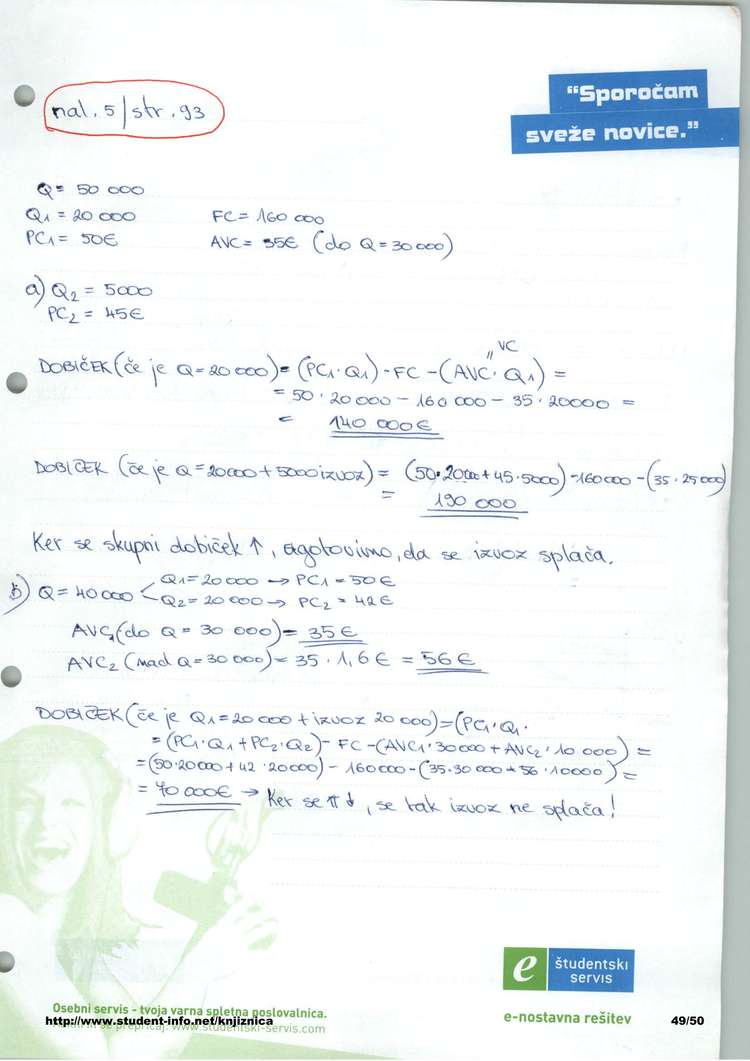 nal. 5 / str. 93
“Sporočam
sveže novice.”
Q = 50 000
Q1 = 20 000 FC = 160 000
PC1 = 50€ AVC = 35€ (do Q = 30 000)
a) Q2 = 5000
PC2 = 45€
" VC
DOBIČEK (če je Q = 20 000) = (PC1 · Q1) - FC - (AVC · Q1) =
= 50 · 20 000 - 160 000 - 35 · 20000 =
= 140 000€
DOBIČEK (če je Q = 20000 + 5000 izvoz) = (50 · 20000 + 45 · 5000) - 160000 - (35 · 25000)
= 190 000
Ker se skupni dobiček ↑, ugotovimo, da se izvoz splača.
b) Q = 40000 < Q1 = 20 000 → PC1 = 50€
Q2 = 20 000 → PC2 = 42€
AVC1 (do Q = 30 000) = 35€
AVC2 (nad Q = 30 000) = 35 · 1,6€ = 56€
DOBIČEK (če je Q1 = 20 000 + izvoz 20 000) = (PC1 · Q1 ·
= (PC1 · Q1 + PC2 · Q2) - FC - (AVC1 · 30000 + AVC2 · 10 000) =
= (50 · 20000 + 42 · 20000) - 160000 - (35 · 30 000 + 56 · 10000) =
= 70 000€ → Ker se π ↓, se tak izvoz ne splača!
e študentski
servis
Osebni servis - tvoja varna spletna poslovalnica.
http://www.student-info.net/knjiznica
www.studentski-servis.com
e-nostavna rešitev
49/50